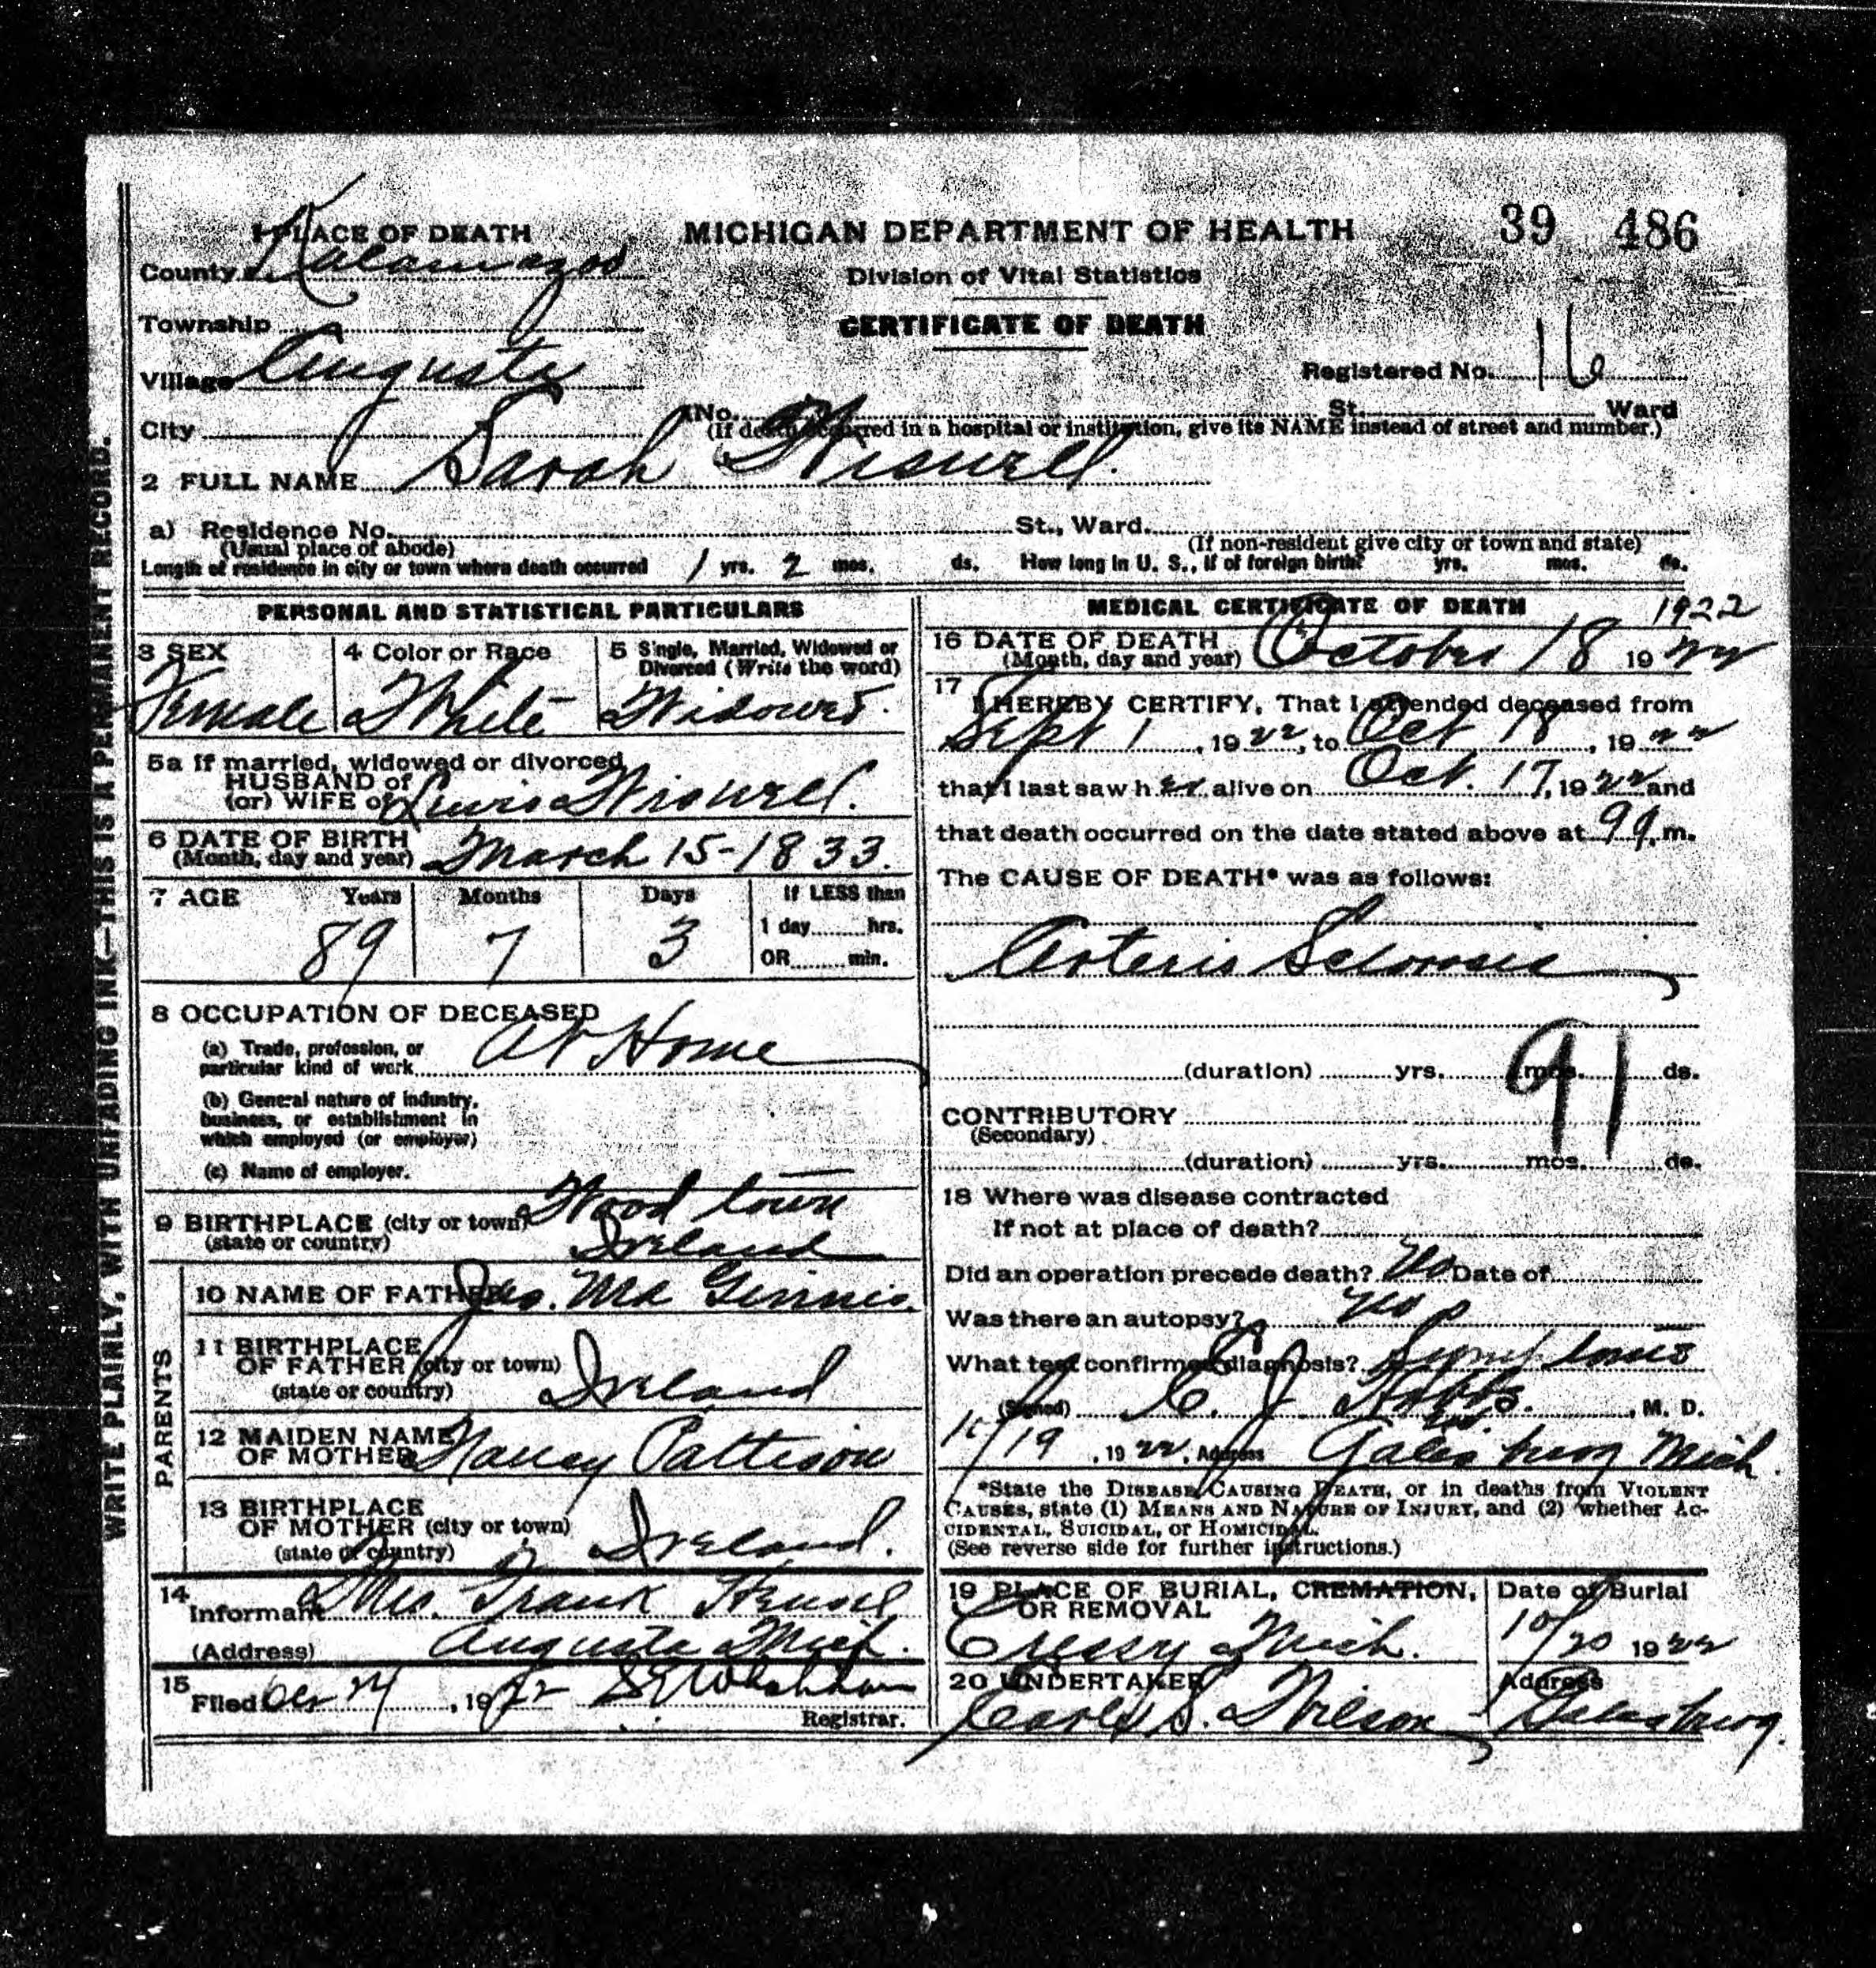 39 486
1 PLACE OF DEATH
MICHIGAN DEPARTMENT OF HEALTH
County Kalamazoo
Division of Vital Statistics
Township
CERTIFICATE OF DEATH
Village Augusta
Registered No. 16
City
(No. St. Ward
(If death occurred in a hospital or institution, give its NAME instead of street and number.)
2 FULL NAME Sarah Wiswell.
a) Residence No. St., Ward.
(Usual place of abode) (If non-resident give city or town and state)
Length of residence in city or town where death occurred 1 yrs. 2 mos. ds. How long in U. S., if of foreign birth? yrs. mos. ds.
PERSONAL AND STATISTICAL PARTICULARS
3 SEX 4 Color or Race 5 Single, Married, Widowed or
Divorced (Write the word)
Female White Widowed.
5a If married, widowed or divorced
HUSBAND of
(or) WIFE of Lewis Wiswell.
6 DATE OF BIRTH
(Month, day and year) March 15-1833.
7 AGE Years Months Days If LESS than
1 day hrs.
89 7 3
OR min.
8 OCCUPATION OF DECEASED
(a) Trade, profession, or
particular kind of work At Home
(b) General nature of industry,
business, or establishment in
which employed (or employer)
(c) Name of employer.
9 BIRTHPLACE (city or town) Wood town
(state or country) Ireland
PARENTS
10 NAME OF FATHER Jas. Ginnis.
11 BIRTHPLACE
OF FATHER (city or town)
(state or country) Ireland
12 MAIDEN NAME
OF MOTHER Nancy Pattison
13 BIRTHPLACE
OF MOTHER (city or town)
(state or country) Ireland.
14
Informant Mrs. Frank
(Address) Augusta Mich.
15
Filed Oct 24, 1922
Registrar.
MEDICAL CERTIFICATE OF DEATH
1922
16 DATE OF DEATH
(Month, day and year) October 18 1922
17
I HEREBY CERTIFY, That I attended deceased from
Sept 1, 1922, to Oct 18, 1922
that I last saw her alive on Oct. 17, 1922 and
that death occurred on the date stated above at 9 a. m.
The CAUSE OF DEATH* was as follows:
Arterio Sclerosis
91
(duration) yrs. mos. ds.
CONTRIBUTORY
(Secondary)
(duration) yrs. mos. ds.
18 Where was disease contracted
If not at place of death?
Did an operation precede death? No Date of
Was there an autopsy? No
What test confirmed diagnosis? Symptoms
(Signed) C. J. Hobbs. , M. D.
10/19, 1922, Address Galesburg Mich.
*State the DISEASE CAUSING DEATH, or in deaths from VIOLENT
CAUSES, state (1) MEANS AND NATURE OF INJURY, and (2) whether AC-
CIDENTAL, SUICIDAL, or HOMICIDAL.
(See reverse side for further instructions.)
19 PLACE OF BURIAL, CREMATION, Date of Burial
OR REMOVAL
Cressy Mich. 10/20 1922
20 UNDERTAKER Address
Carl S. Wilson Galesburg.
WRITE PLAINLY, WITH UNFADING INK—THIS IS A PERMANENT RECORD.